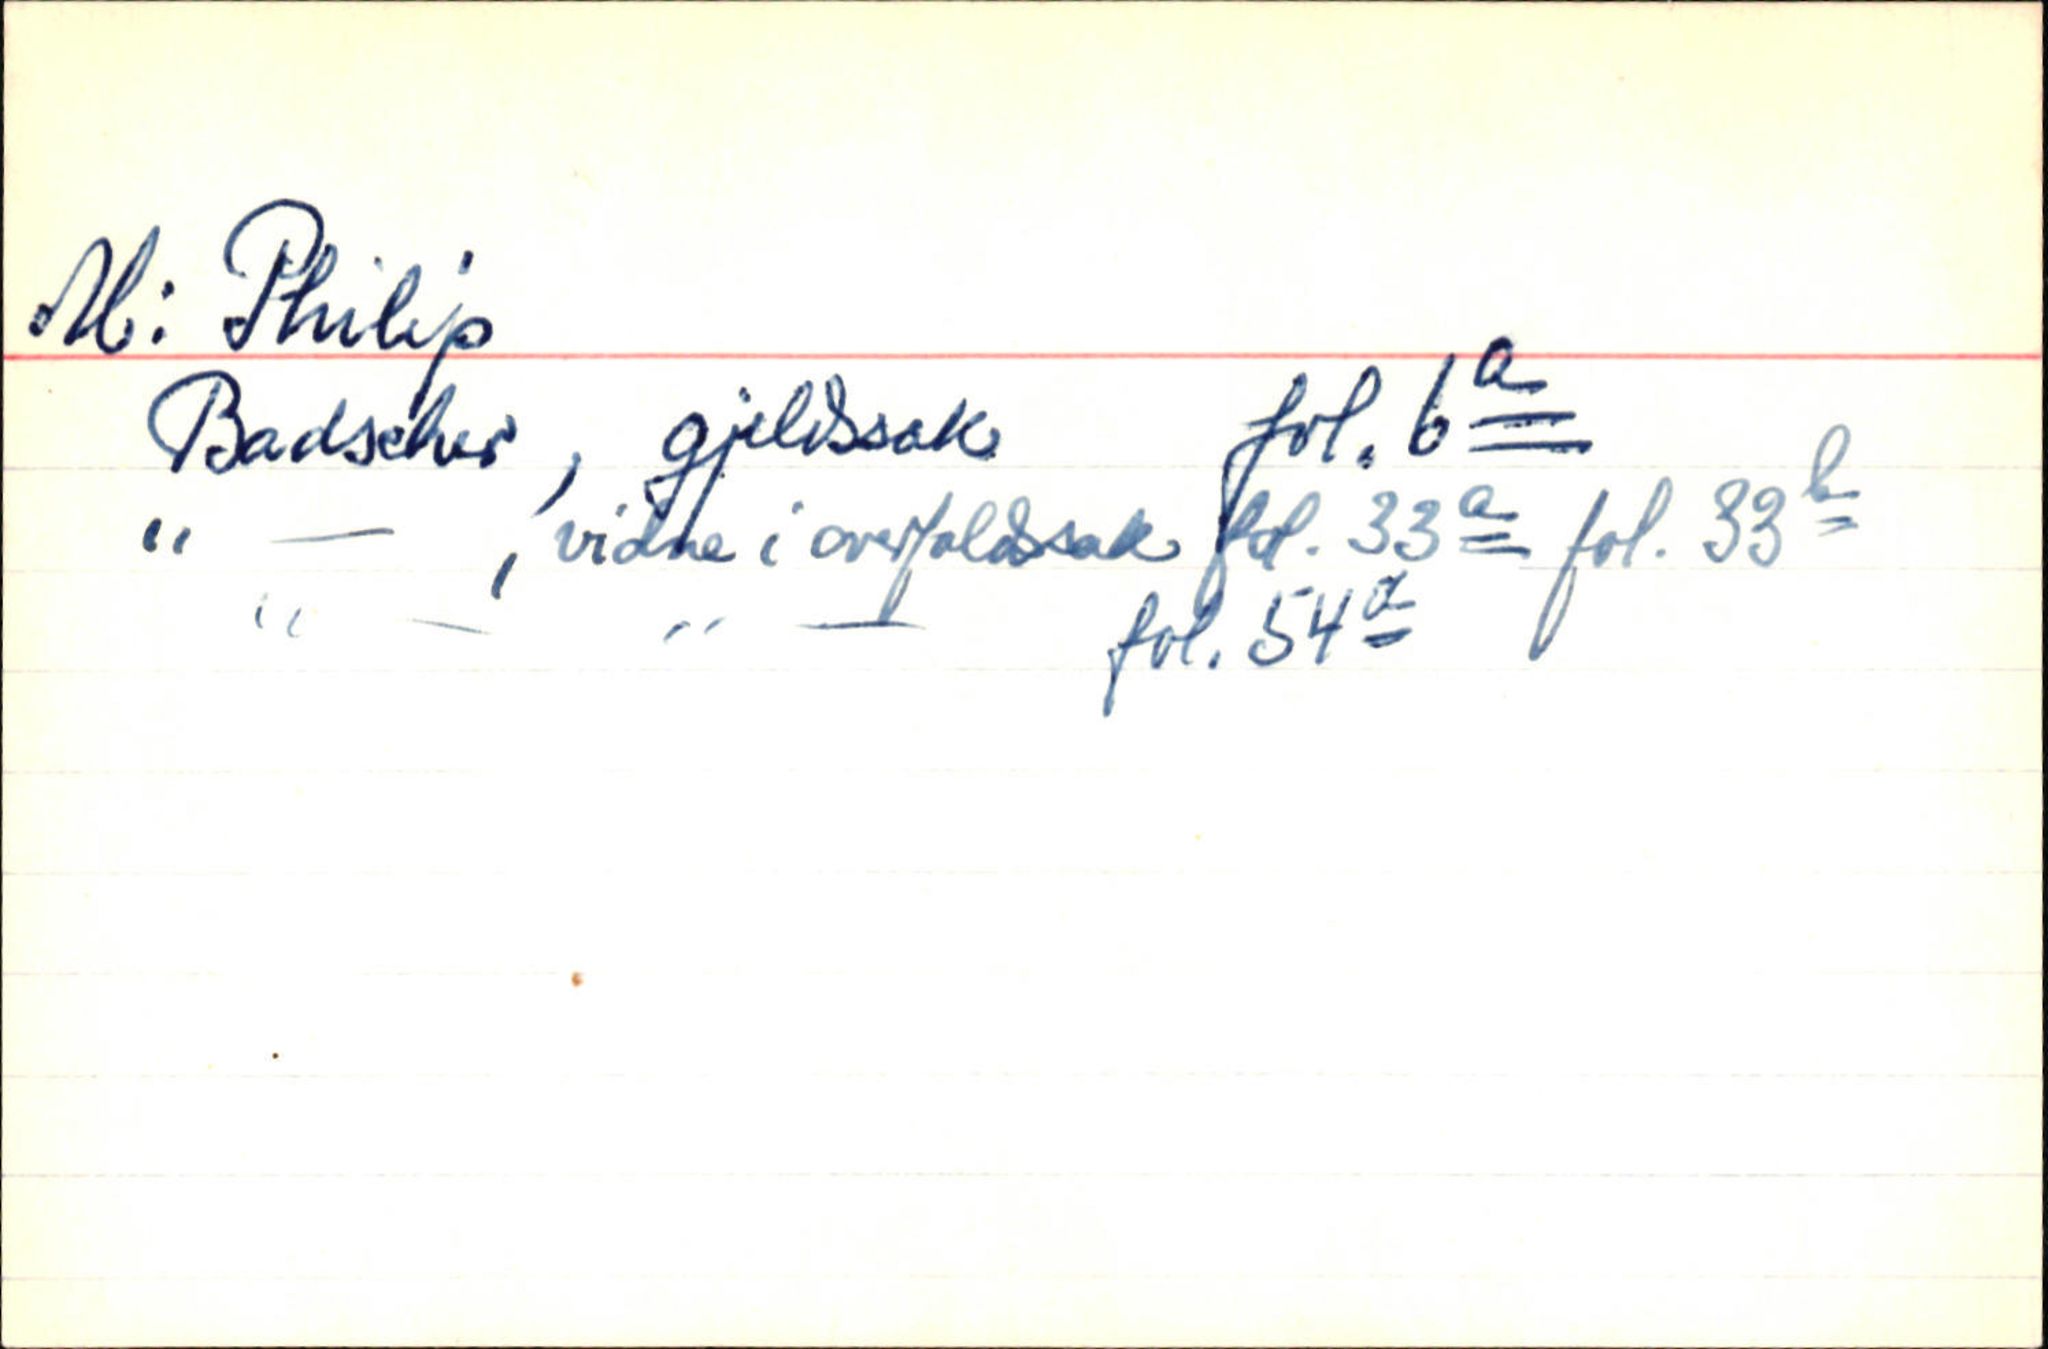 M: Philip
Badscher, gjeldssak fol. 6a
" — , vidne i overfaldssak fol. 33a fol. 33b
" — " — fol. 54a